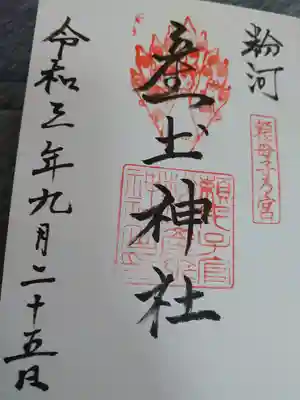 粉河
頼母子乃宮
産土神社
令和三年九月二十五日